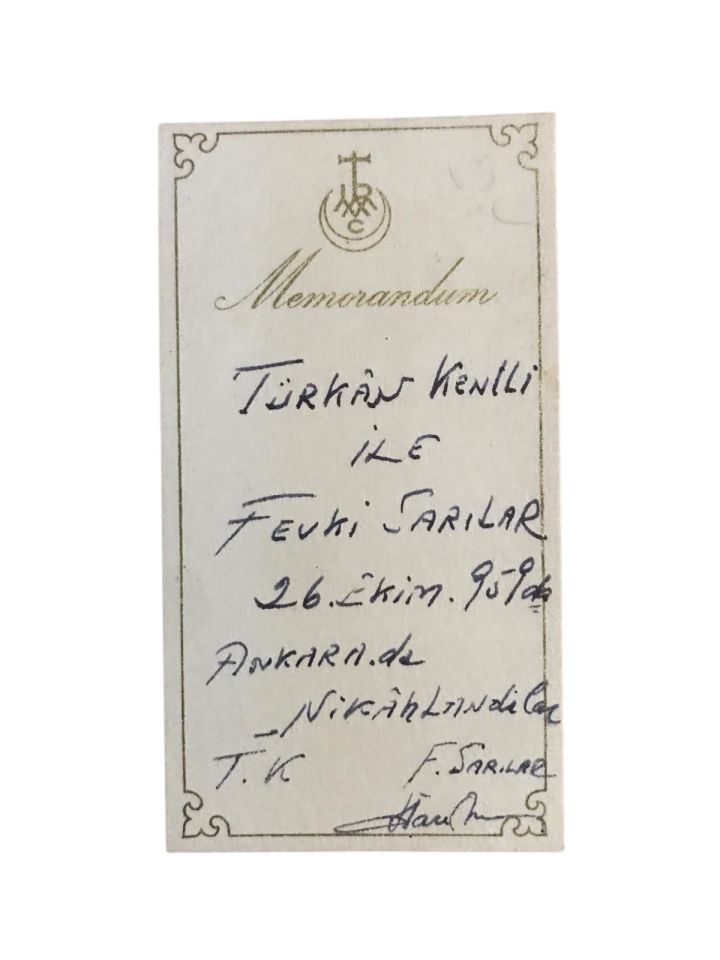 Memorandum
TÜRKÂN KENtLi
iLE
FEVKi SARILAR
26.Ekim.959da
ANKARA.da
NiKÂhLANdılar
T.K F.SARILAR